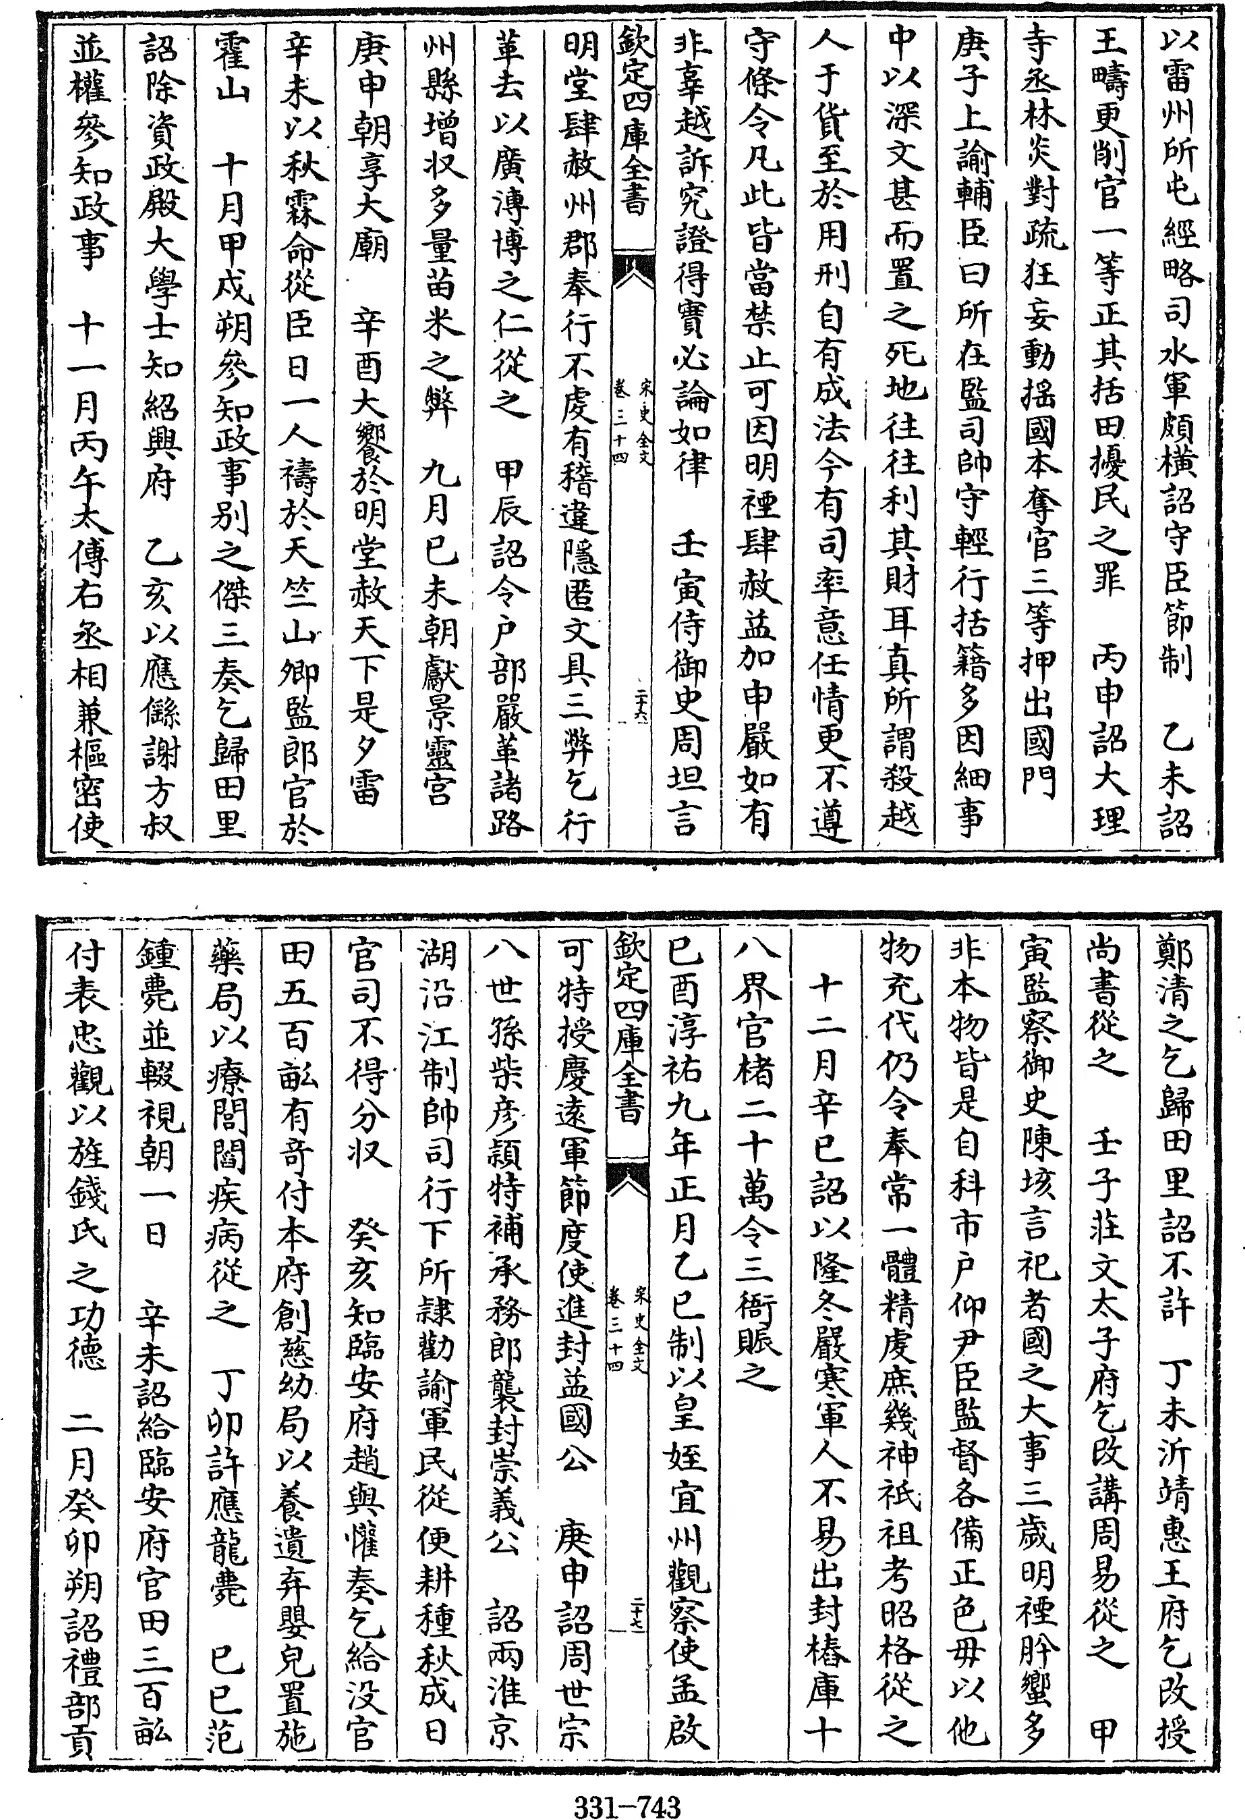 以雷州所屯經略司水軍頗橫詔守臣節制　乙未詔
王疇更削官一等正其括田擾民之罪　丙申詔大理
寺丞林炎對疏狂妄動搖國本奪官三等押出國門
庚子上諭輔臣曰所在監司帥守輕行括籍多因細事
中以深文甚而置之死地往往利其財耳真所謂殺越
人于貨至於用刑自有成法今有司率意任情更不遵
守條令凡此皆當禁止可因明禋肆赦益加申嚴如有
非辜越訴究證得實必論如律　壬寅侍御史周坦言
欽定四庫全書
宋史全文
卷三十四
二十六
明堂肆赦州郡奉行不虔有稽違隱匿文具三弊乞行
革去以廣溥博之仁從之　甲辰詔令户部嚴革諸路
州縣增収多量苗米之弊　九月已未朝獻景靈宫
庚申朝享大廟　辛酉大饗於明堂赦天下是夕雷
辛未以秋霖命從臣日一人禱於天竺山卿監郎官於
霍山　十月甲戌朔參知政事别之傑三奏乞歸田里
詔除資政殿大學士知紹興府　乙亥以應㒡謝方叔
並權參知政事　十一月丙午太傅右丞相兼樞密使
鄭清之乞歸田里詔不許　丁未沂靖惠王府乞改授
尚書從之　壬子莊文太子府乞改講周易從之　甲
寅監察御史陳垓言祀者國之大事三歲明禋肸蠁多
非本物皆是自科市户仰尹臣監督各備正色毋以他
物充代仍令奉常一體精虔庶幾神祇祖考昭格從之
十二月辛巳詔以隆冬嚴寒軍人不易出封樁庫十
八界官楮二十萬令三衙賑之
巳酉淳祐九年正月乙巳制以皇姪宜州觀察使孟啟
欽定四庫全書
宋史全文
卷三十四
二十七
可特授慶遠軍節度使進封益國公　庚申詔周世宗
八世孫柴彦穎特補承務郎襲封崇義公　詔兩淮京
湖沿江制帥司行下所隷勸諭軍民從便耕種秋成日
官司不得分収　癸亥知臨安府趙與懽奏乞給没官
田五百畝有奇付本府創慈幼局以養遺弃嬰兒置施
藥局以療閭閻疾病從之　丁卯許應龍薨　已巳范
鍾薨並輟視朝一日　辛未詔給臨安府官田三百畝
付表忠觀以旌錢氏之功德　二月癸卯朔詔禮部貢
331-743